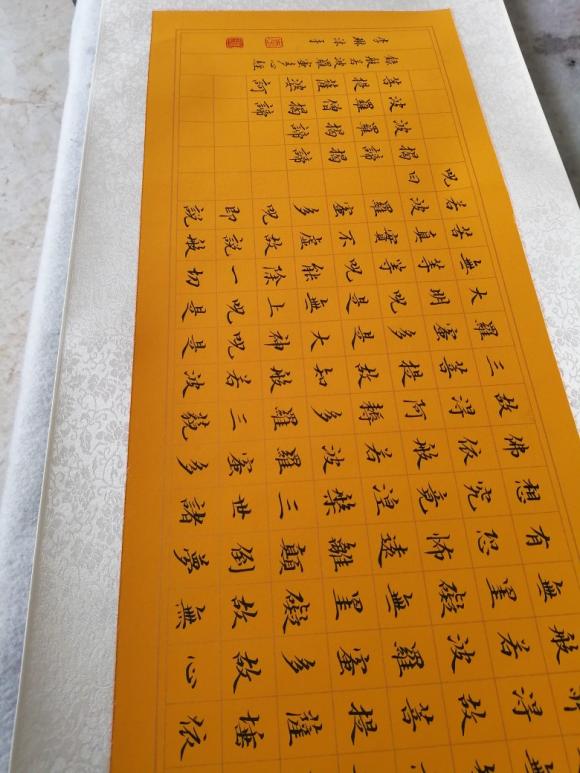 得故菩提薩埵依
般若波羅蜜多故心
無罣礙無罣礙故無
有恐怖遠離顛倒夢
想究竟涅槃三世諸
佛依般若波羅蜜多
故得阿耨多羅三藐
三菩提故知般若波
羅蜜多是大神呪是
大明呪是無上呪是
無等等呪能除一切
苦真實不虛故說般
若波羅蜜多呪即說
呪曰
揭諦揭諦
波羅揭諦
波羅僧揭諦
菩提薩婆訶
錄般若波羅蜜多心經
沐手